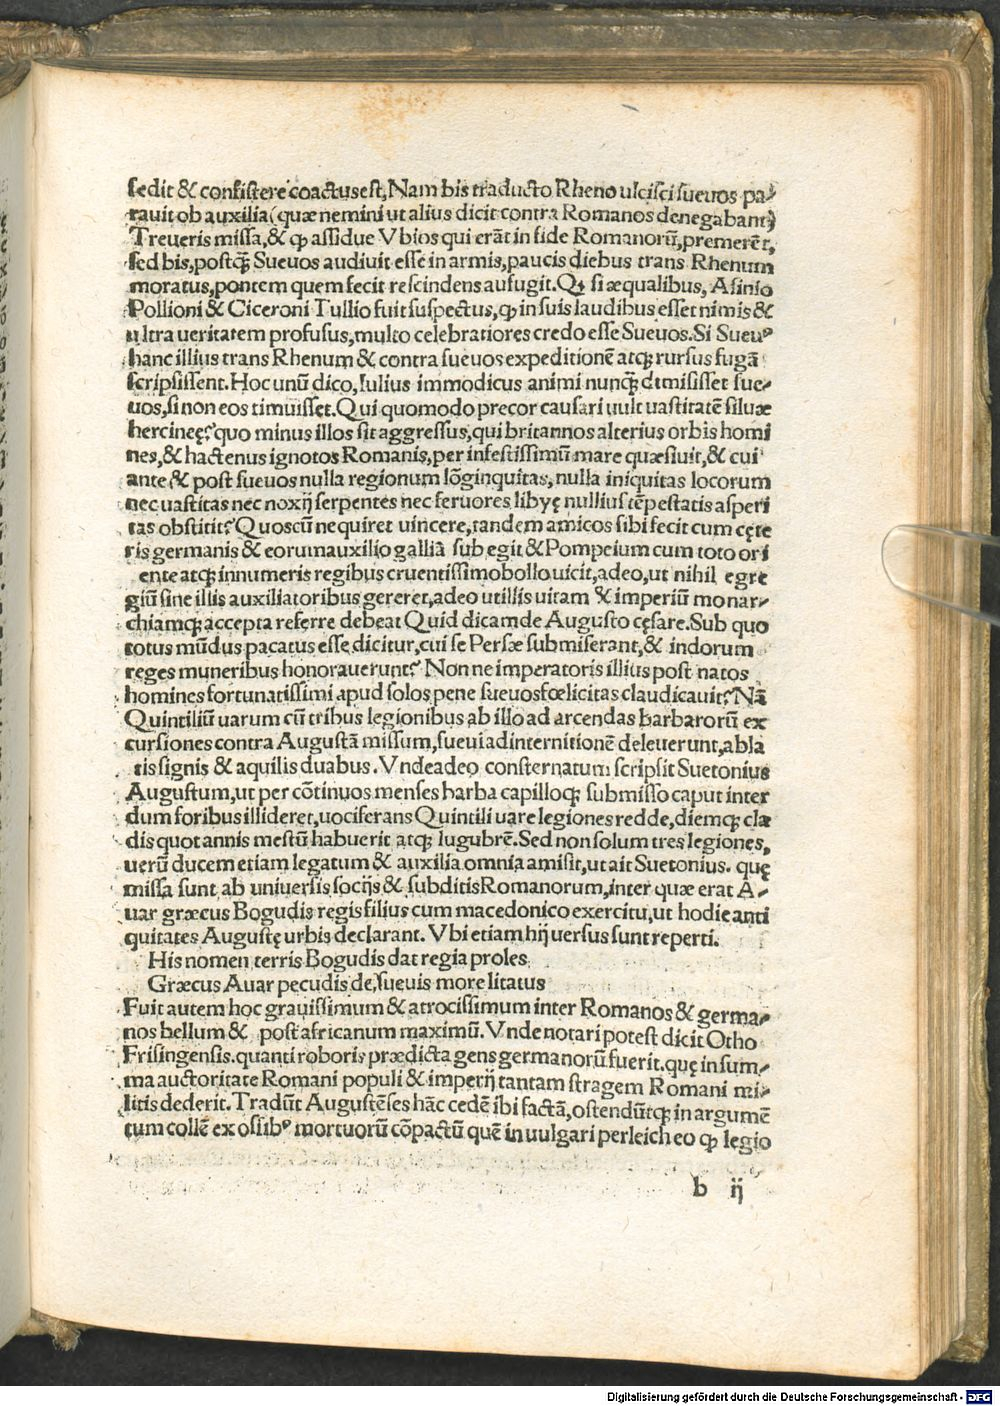 sedit & consistere coactus est, Nam bis traducto Rheno ulcisci sueuos pa⸗
rauit ob auxilia (quæ nemini ut alius dicit contra Romanos denegabant)
Treueris missa, & ꝙ assidue Vbios qui erãt in fide Romanorũ, premerẽt,
sed bis, postq̃ Sueuos audiuit esse in armis, paucis diebus trans Rhenum
moratus, pontem quem fecit rescindens aufugit. Qꝫ si æqualibus, Asinio
Pollioni & Ciceroni Tullio fuit suspectus, ꝙ in suis laudibus esset nimis &
ultra ueritatem profusus, multo celebratiores credo esse Sueuos. Si Sueuꝰ
hanc illius trans Rhenum & contra sueuos expeditionẽ atqꝫ rursus fugã
scripsissent. Hoc unũ dico, Iulius immodicus animi nunq̃ dimisisset sue⸗
uos, si non eos timuisset. Qui quomodo precor causari uult uastitatẽ siluæ
hercineę? quo minus illos sit aggressus, qui britannos alterius orbis homi
nes, & hactenus ignotos Romanis, per infestissimũ mare quæsiuit, & cui
ante & post sueuos nulla regionum lõginquitas, nulla iniquitas locorum
nec uastitas nec noxij serpentes nec feruores libyę nullius tẽpestatis asperi
tas obstitit? Quoscũ nequiret uincere, tandem amicos sibi fecit cum cęte
ris germanis & eorum auxilio galliã sub egit & Pompeium cum toto ori
ente atqꝫ innumeris regibus cruentissimo bollo uicit, adeo, ut nihil egre
giũ sine illis auxiliatoribus gereret, adeo ut illis uitam & imperiũ monar⸗
chiamqꝫ accepta referre debeat Quid dicam de Augusto cęsare. Sub quo
totus mũdus pacatus esse dicitur, cui se Persæ submiserant, & indorum
reges muneribus honorauerunt? Non ne imperatoris illius post natos
homines fortunatissimi apud solos pene sueuos fœlicitas claudicauit? Nã
Quintiliũ uarum cũ tribus legionibus ab illo ad arcendas barbarorũ ex
cursiones contra Augustã missum, sueui ad internitionẽ deleuerunt, abla
tis signis & aquilis duabus. Vnde adeo consternatum scripsit Suetonius
Augustum, ut per cõtinuos menses barba capilloqꝫ submisso caput inter
dum foribus illideret, uociferans Quintili uare legiones redde, diemqꝫ cla
dis quot annis mestũ habuerit atqꝫ lugubrẽ. Sed non solum tres legiones,
uerũ ducem etiam legatum & auxilia omnia amisit, ut ait Suetonius. quę
missa sunt ab uniuersis socijs & subditis Romanorum, inter quæ erat A⸗
uar græcus Bogudis regis filius cum macedonico exercitu, ut hodie anti
quitates Augustę urbis declarant. Vbi etiam hij uersus sunt reperti.
His nomen terris Bogudis dat regia proles
Græcus Auar pecudis de, sueuis more litatus
Fuit autem hoc grauissimum & atrocissimum inter Romanos & germa⸗
nos bellum & post africanum maximũ. Vnde notari potest dicit Otho
Frisingensis. quanti roboris prædicta gens germanorũ fuerit. quę in sum⸗
ma auctoritate Romani populi & imperij tantam stragem Romani mi⸗
litis dederit. Tradũt Augustẽses hãc cedẽ ibi factã, ostendũtqꝫ in argumẽ
tum collẽ ex ossibꝰ mortuorũ cõpactũ quẽ in uulgari perleich eo ꝙ legio
b ij
Digitalisierung gefördert durch die Deutsche Forschungsgemeinschaft - DFG